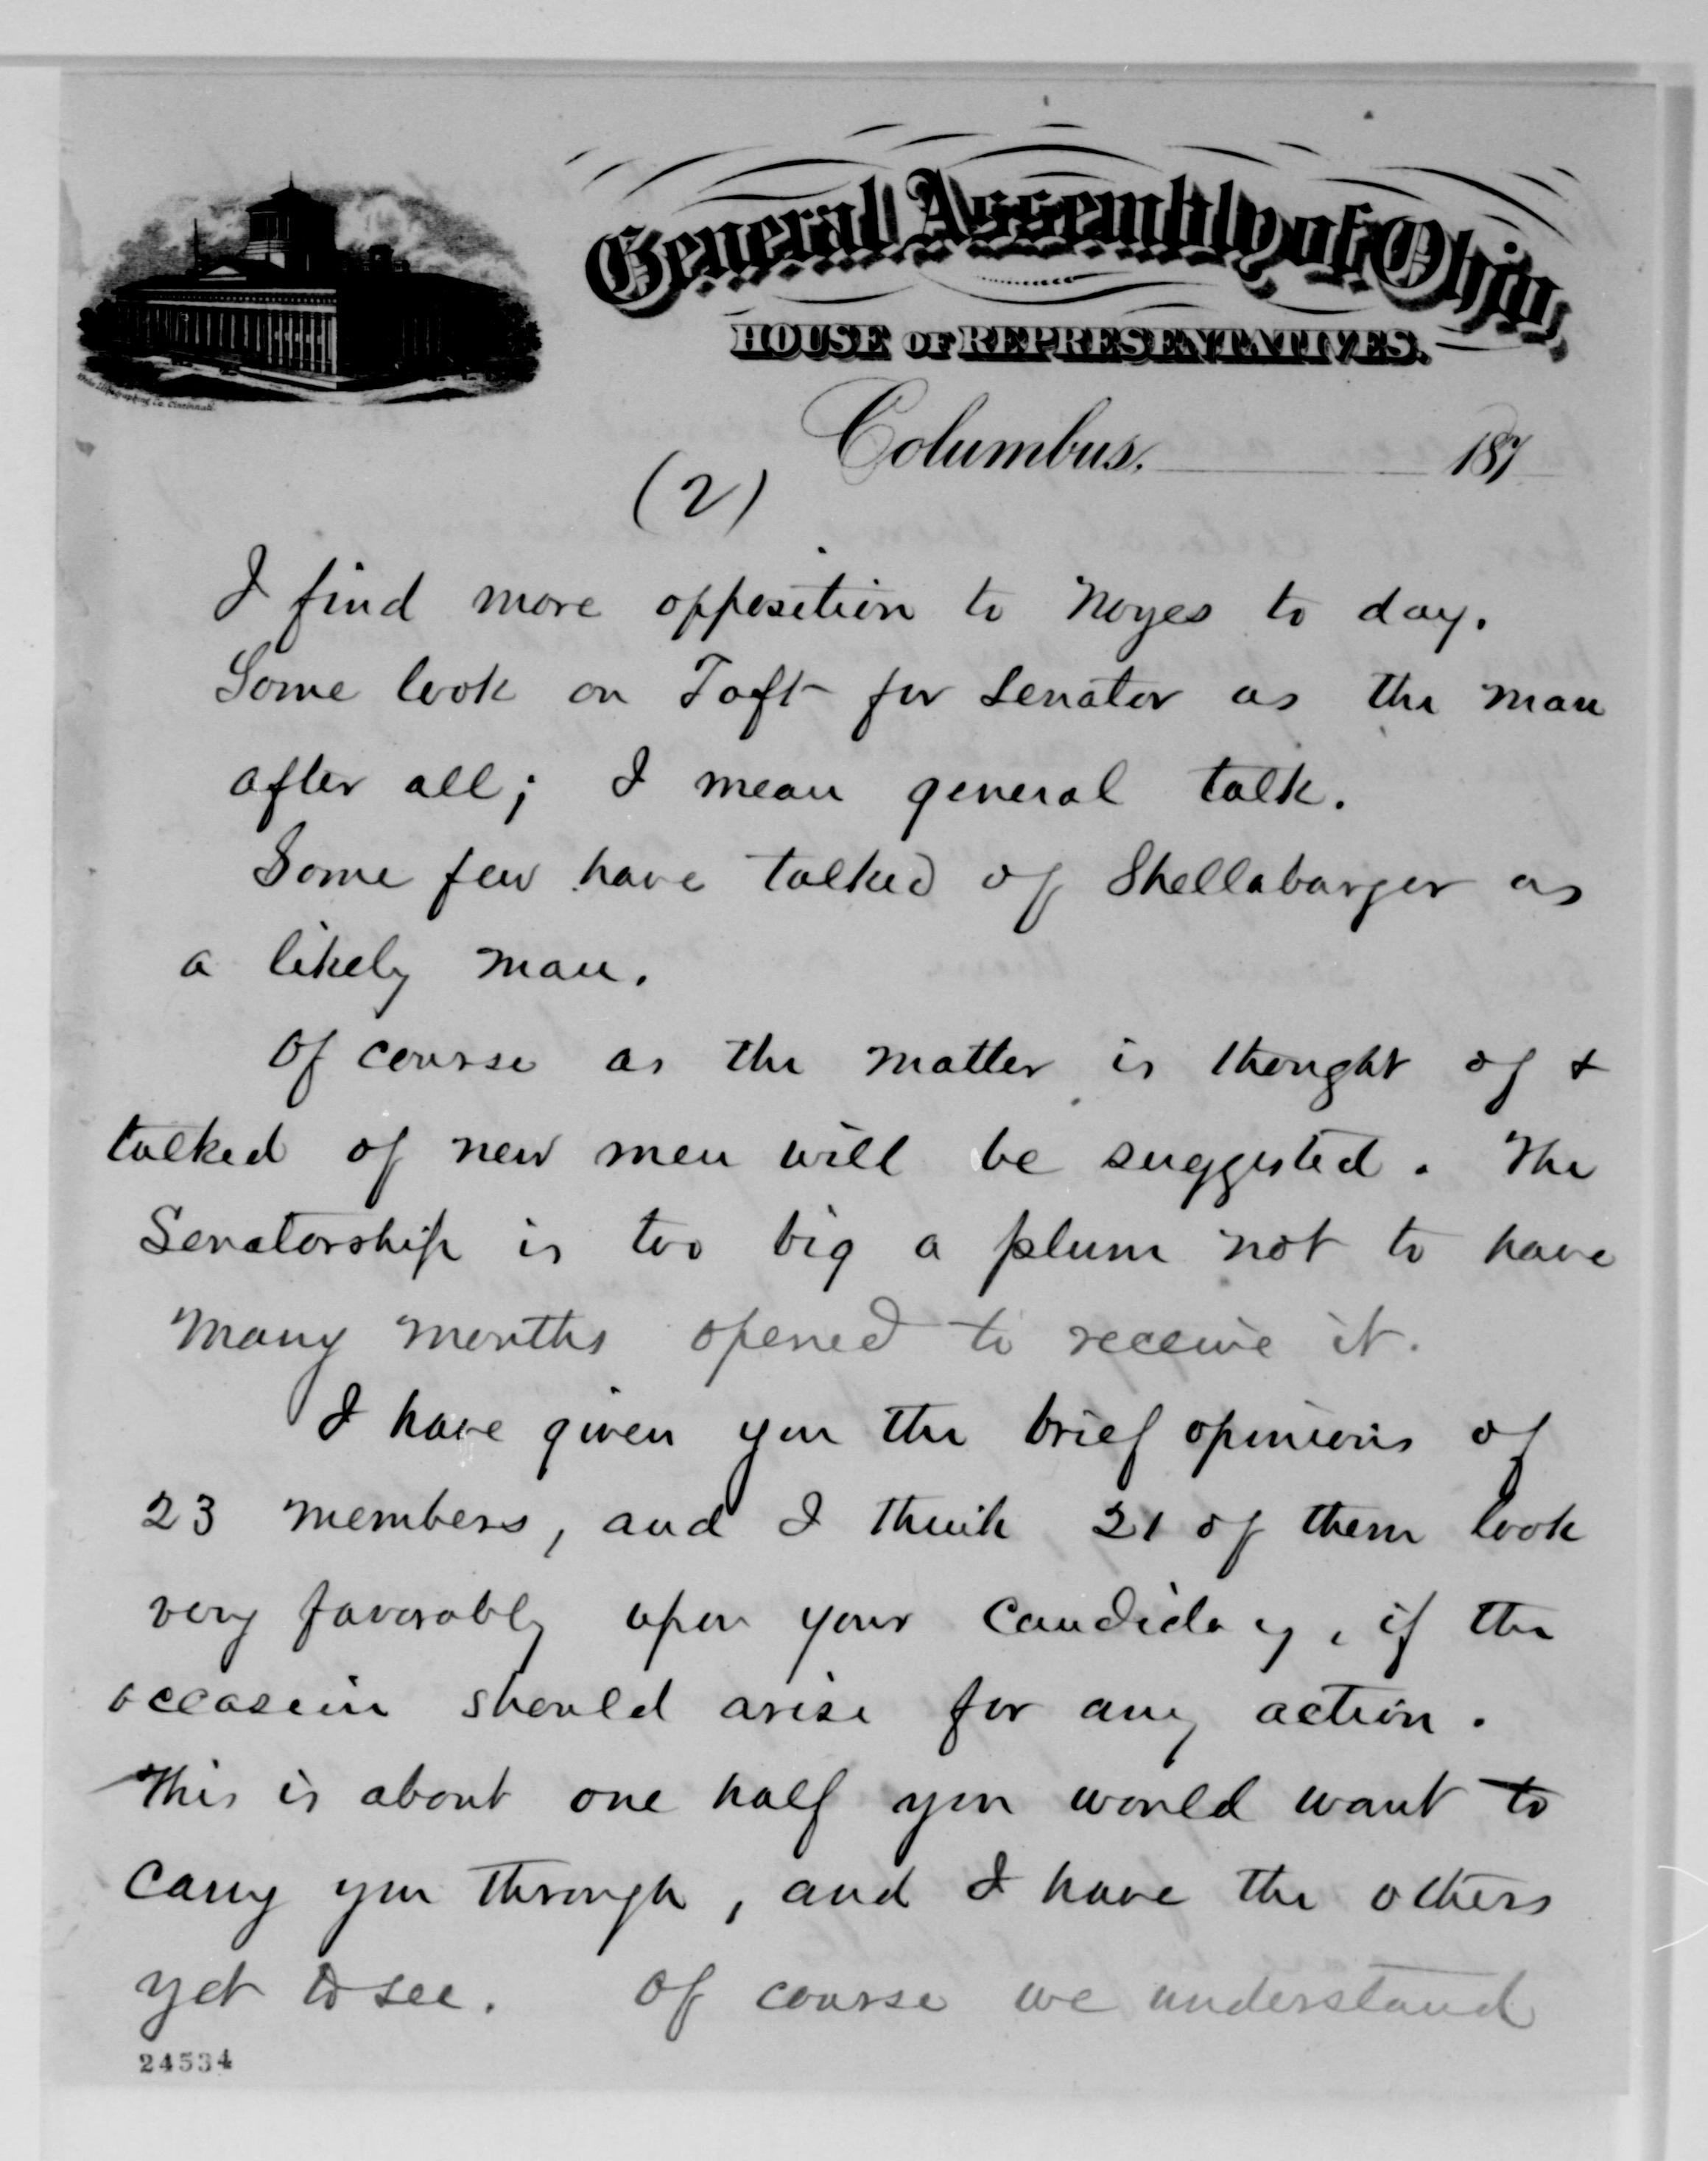 General Assembly of Ohio,
HOUSE OF REPRESENTATIVES.
Columbus, 187
(2)
I find more opposition to Noyes to day.
Some look on Taft for Senator as the man
after all; I mean general talk.
Some few have talked of Shellabarger as
a likely man.
Of course as the matter is thought of &
talked of new men will be suggested. The
Senatorship is too big a plum not to have
many mouths opened to receive it.
I have given you the brief opinions of
23 members, and I think 21 of them look
very favorably upon your candidacy, if the
occasion should arise for any action.
This is about one half you would want to
carry you through, and I have the others
yet to see. Of course we understand
24534